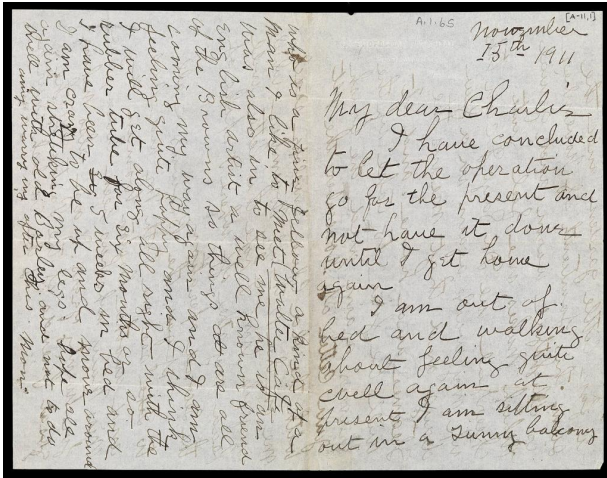 A.1.65
[A-11,1]
November
15th 1911
My dear Charlie
I have concluded
to let the operation
go for the present and
not have it done
until I get home
again
I am out of
bed and walking
about feeling quite
well again at
present I am sitting
out in a sunny balcony
who is a fine fellow a kind of a
man I like to meet Walter
was also in to see me he is an
English artist a well known friend
of the Browns so things are all
coming my way again and I am
feeling quite and I think
I will get along all right with the
rubber tube for six months or so
I have been 5 weeks in bed and
I am crazy to be up and move around
again stretching my legs. Hope all
well with old and not to do
any worrying after this Mon